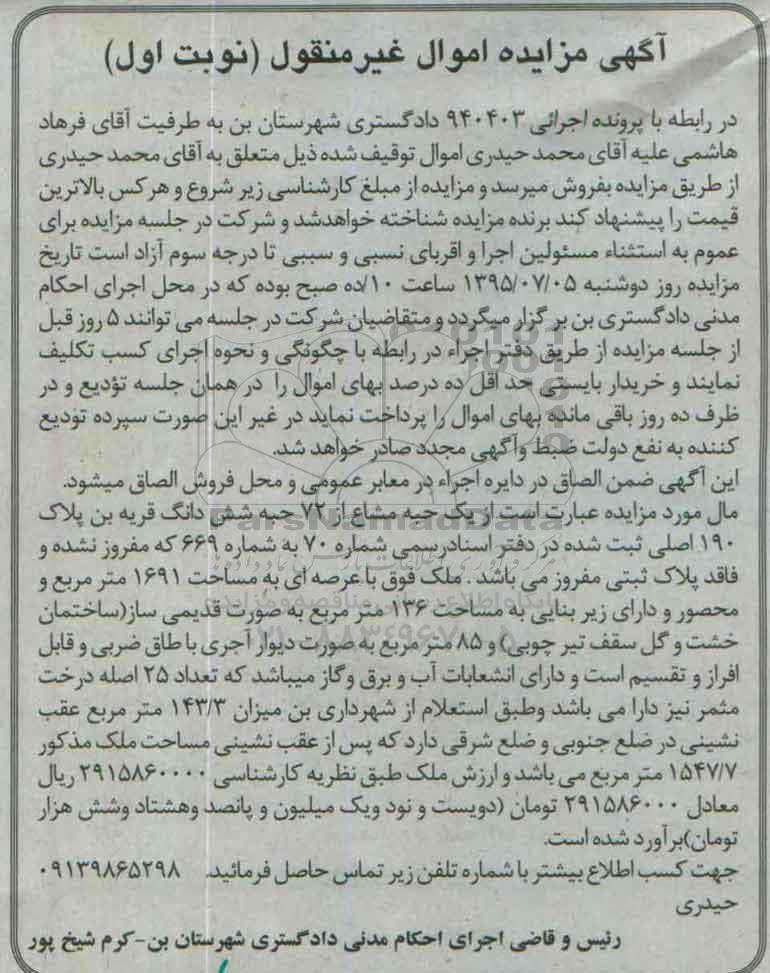 آگهی مزایده اموال غیرمنقول (نوبت اول)
در رابطه با پرونده اجرائی ۹۴۰۴۰۳ دادگستری شهرستان بن به طرفیت آقای فرهاد
هاشمی علیه آقای محمد حیدری اموال توقیف شده ذیل متعلق به آقای محمد حیدری
از طریق مزایده بفروش میرسد و مزایده از مبلغ کارشناسی زیر شروع و هرکس بالاترین
قیمت را پیشنهاد کند برنده مزایده شناخته خواهدشد و شرکت در جلسه مزایده برای
عموم به استثناء مسئولین اجرا و اقربای نسبی و سببی تا درجه سوم آزاد است تاریخ
مزایده روز دوشنبه ۱۳۹۵/۰۷/۰۵ ساعت ۱۰/ده صبح بوده که در محل اجرای احکام
مدنی دادگستری بن بر گزار میگردد و متقاضیان شرکت در جلسه می توانند ۵ روز قبل
از جلسه مزایده از طریق دفتر اجراء در رابطه با چگونگی و نحوه اجرای کسب تکلیف
نمایند و خریدار بایستی حد اقل ده درصد بهای اموال را در همان جلسه تؤدیع و در
ظرف ده روز باقی مانده بهای اموال را پرداخت نماید در غیر این صورت سپرده تودیع
کننده به نفع دولت ضبط وآگهی مجدد صادر خواهد شد.
این آگهی ضمن الصاق در دایره اجراء در معابر عمومی و محل فروش الصاق میشود.
مال مورد مزایده عبارت است از یک حبه مشاع از ۷۲ حبه شش دانگ قریه بن پلاک
۱۹۰ اصلی ثبت شده در دفتر اسنادرسمی شماره ۷۰ به شماره ۶۶۹ که مفروز نشده و
فاقد پلاک ثبتی مفروز می باشد . ملک فوق با عرصه ای به مساحت ۱۶۹۱ متر مربع و
محصور و دارای زیر بنایی به مساحت ۱۳۶ متر مربع به صورت قدیمی ساز(ساختمان
خشت و گل سقف تیر چوبی) و ۸۵ متر مربع به صورت دیوار آجری با طاق ضربی و قابل
افراز و تقسیم است و دارای انشعابات آب و برق وگاز میباشد که تعداد ۲۵ اصله درخت
مثمر نیز دارا می باشد وطبق استعلام از شهرداری بن میزان ۱۴۳/۳ متر مربع عقب
نشینی در ضلع جنوبی و ضلع شرقی دارد که پس از عقب نشینی مساحت ملک مذکور
۱۵۴۷/۷ متر مربع می باشد و ارزش ملک طبق نظریه کارشناسی ۲۹۱۵۸۶۰۰۰۰ ریال
معادل ۲۹۱۵۸۶۰۰۰ تومان (دویست و نود ویک میلیون و پانصد وهشتاد وشش هزار
تومان)برآورد شده است.
جهت کسب اطلاع بیشتر با شماره تلفن زیر تماس حاصل فرمائید. ۰۹۱۳۹۸۶۵۲۹۸
حیدری
رئیس و قاضی اجرای احکام مدنی دادگستری شهرستان بن-کرم شیخ پور
ParsNamadData